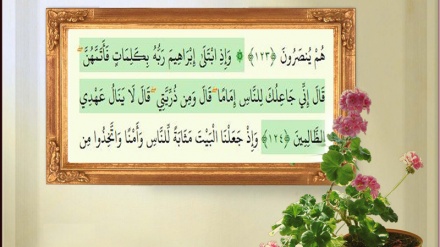 هُمْ يُنصَرُونَ ﴿١٢٣﴾ ۞ وَإِذِ ابْتَلَىٰ إِبْرَاهِيمَ رَبُّهُ بِكَلِمَاتٍ فَأَتَمَّهُنَّ ۖ
قَالَ إِنِّي جَاعِلُكَ لِلنَّاسِ إِمَامًا ۖ قَالَ وَمِن ذُرِّيَّتِي ۖ قَالَ لَا يَنَالُ عَهْدِي
الظَّالِمِينَ ﴿١٢٤﴾ وَإِذْ جَعَلْنَا الْبَيْتَ مَثَابَةً لِّلنَّاسِ وَأَمْنًا وَاتَّخِذُوا مِن